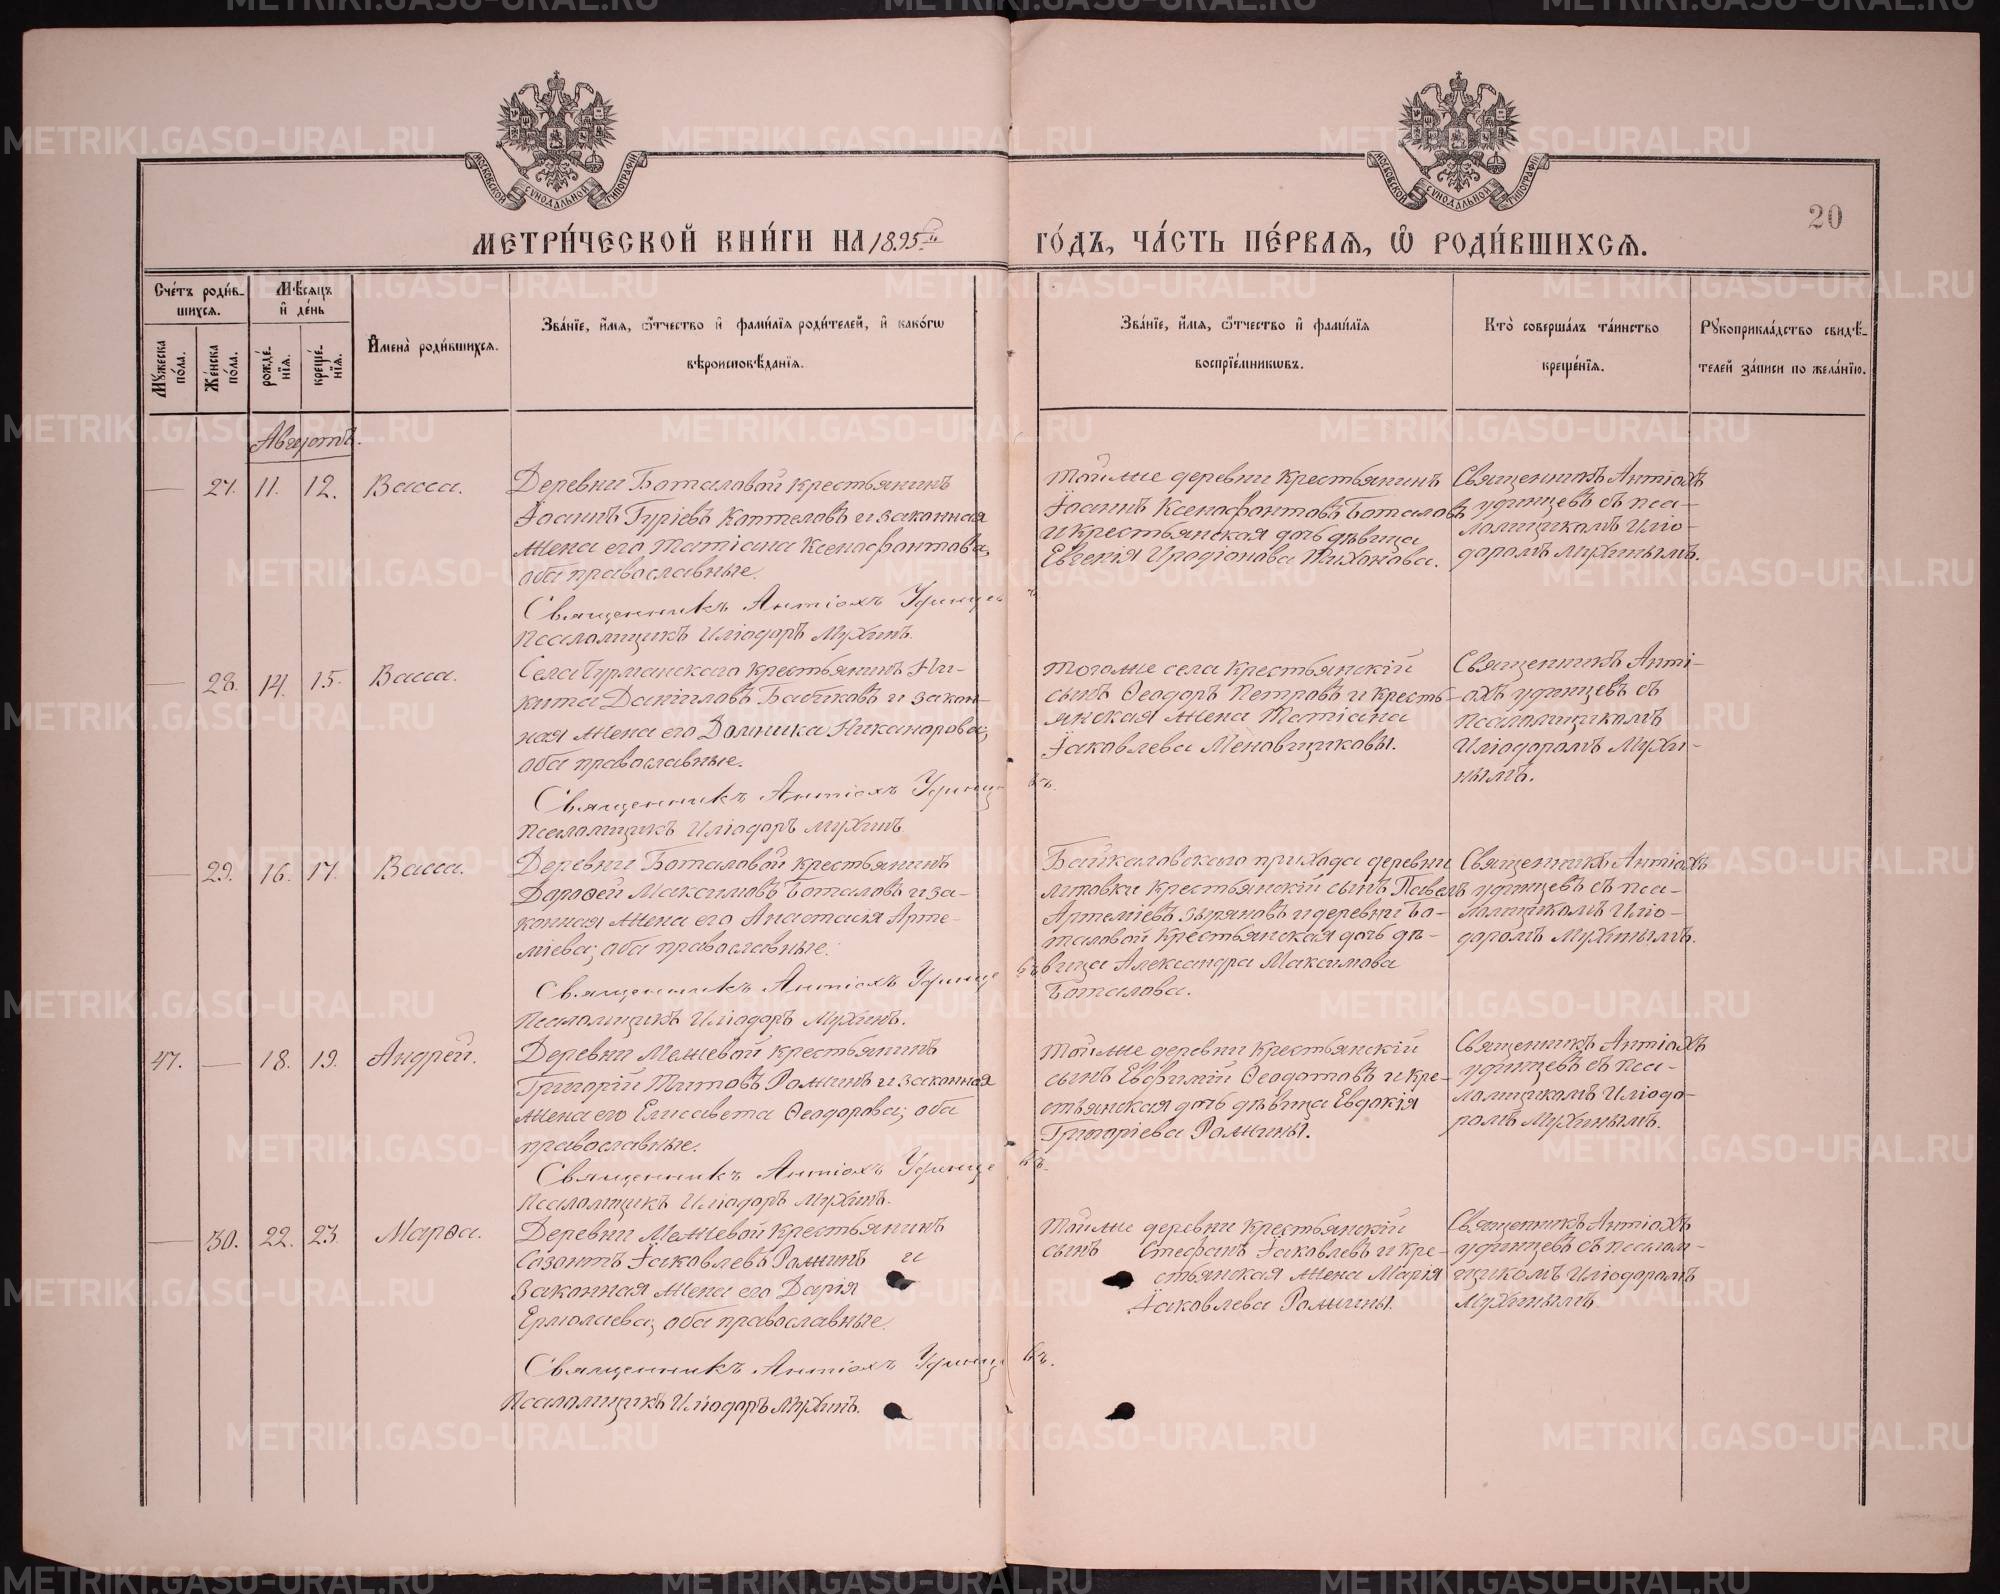 МЕТРИ́ЧЕСКОЙ КНИ́ГИ НА 1895й
ГО́ДЪ, ЧА́СТЬ ПЕ́РВАЯ, Ѽ РОДИ́ВШИХСѦ.
20
МОСКОВСКОЙ СѴНОДАЛЬНОЙ ТИПОГРАФІИ
МОСКОВСКОЙ СѴНОДАЛЬНОЙ ТИПОГРАФІИ
Сче́тъ роди́в-
шихсѧ.
Му́жеска по́ла.
Же́нска по́ла.
Мѣ́сѧцъ
и҆ де́нь
рожде́нїѧ.
креще́нїѧ.
И҆мена̀ роди́вшихсѧ.
Зва́нїе, и҆́мѧ, ѻ҆́тчество и҆ фами́лїѧ роди́телей, и҆ како́гѡ
вѣроисповѣ́данїѧ.
Зва́нїе, и҆́мѧ, ѻ҆́тчество и҆ фами́лїѧ
воспрїе́мникѡвъ.
Кто̀ соверша́лъ та́инство
креще́нїѧ.
Рꙋкоприкла́дство свидѣ́-
телей за́писи по жела́нїю.
Августъ.
— 27. 11. 12. Васса.
Деревни Боталовой крестьянинъ
Іоаннъ Гуріевъ Коптеловъ и законная
жена его Татіана Ксенофонтова,
оба православные.
Священникъ Антіохъ Удинцевъ
Псаломщикъ Иліодоръ Мухинъ.
Тойже деревни крестьянинъ
Іоаннъ Ксенофонтовъ Боталовъ
и крестьянская дочь дѣвица
Евгенія Иродіонова Тихонова.
Священникъ Антіохъ
Удинцевъ съ пса-
ломщикомъ Иліо-
доромъ Мухинымъ.
— 28. 14. 15. Васса.
Села Чурманскаго крестьянинъ Ни-
кита Даніиловъ Бабиковъ и закон-
ная жена его Домника Никанорова,
оба православные.
Священникъ Антіохъ Удинцевъ.
Псаломщикъ Иліодоръ Мухинъ
Тогоже села крестьянскій
сынъ Ѳеодоръ Петровъ и кресть-
янская жена Татіана
Іаковлева Меновщиковы.
Священникъ Анті-
охъ Удинцевъ съ
псаломщикомъ
Иліодоромъ Мухи-
нымъ.
— 29. 16. 17. Васса.
Деревни Боталовой крестьянинъ
Дороѳей Максимовъ Боталовъ и за-
конная жена его Анастасія Арте-
міева; оба православные.
Священникъ Антіохъ Удинцевъ
Псаломщикъ Иліодоръ Мухинъ.
Байкаловскаго прихода деревни
Липовки крестьянскій сынъ Павелъ
Артеміевъ Зыряновъ и деревни Бо-
таловой крестьянская дочь дѣ-
вица Александра Максимова
Боталова.
Священникъ Антіохъ
Удинцевъ съ пса-
ломщикомъ Иліо-
доромъ Мухинымъ.
47. — 18. 19. Андрей.
Деревни Межевой крестьянинъ
Григорій Титовъ Ромжинъ и законная
жена его Елисавета Ѳеодорова; оба
православные.
Священникъ Антіохъ Удинцевъ.
Псаломщикъ Иліодоръ Мухинъ.
Тойже деревни крестьянскій
сынъ Евфимій Ѳеодотовъ и кре-
стьянская дочь дѣвица Евдокія
Григоріева Ромжины.
Священникъ Антіохъ
Удинцевъ съ пса-
ломщикомъ Иліодо-
ромъ Мухинымъ.
— 30. 22. 23. Марѳа.
Деревни Межевой крестьянинъ
Созонтъ Іаковлевъ Ромжинъ и
законная жена его Дарія
Ермолаева, оба православные.
Священникъ Антіохъ Удинцевъ.
Псаломщикъ Иліодоръ Мухинъ.
Тойже деревни крестьянскій
сынъ Стефанъ Іаковлевъ и кре-
стьянская жена Марія
Іаковлева Ромжины.
Священникъ Антіохъ
Удинцевъ съ псалом-
щикомъ Иліодоромъ
Мухинымъ.
METRIKI.GASO-URAL.RU